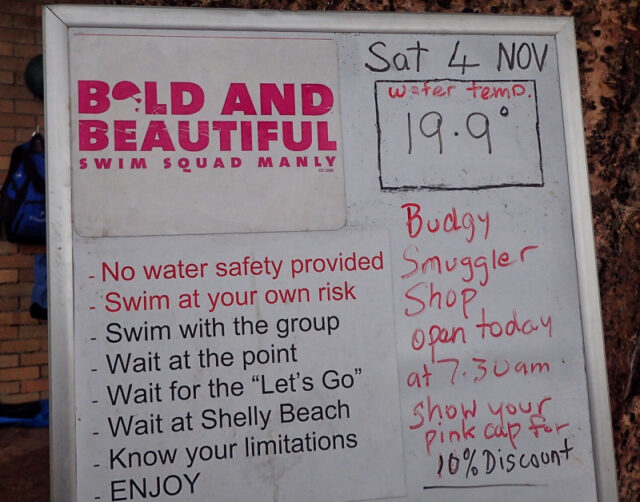 BOLD AND
BEAUTIFUL
SWIM SQUAD MANLY
- No water safety provided
- Swim at your own risk
- Swim with the group
- Wait at the point
- Wait for the “Let’s Go”
- Wait at Shelly Beach
- Know your limitations
- ENJOY
Sat 4 NOV
water temp.
19.9°
Budgy
Smuggler
Shop
open today
at 7.30am
show your
pink cap for
10% Discount